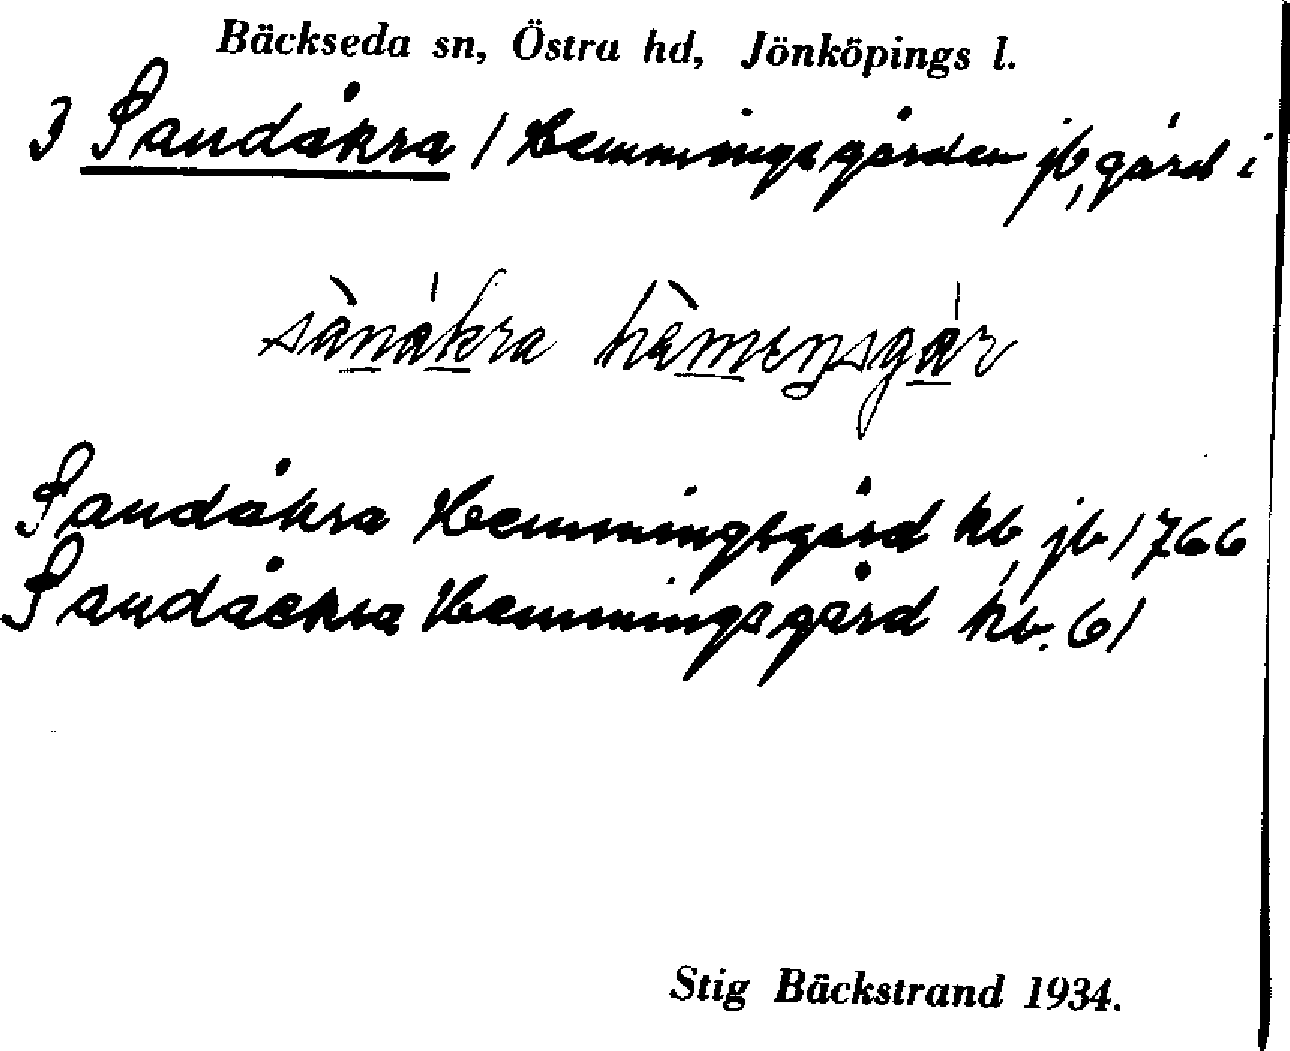 Bäckseda sn, Östra hd, Jönköpings l.
3 Sandåkra 1 Hemmingsgården jb, gård i
sànákra hæ̀meŋsgár
Sandåkra Hemmingsgård kb, jb 1766
Sandåckra Hemmingsgård hb. 61
Stig Bäckstrand 1934.